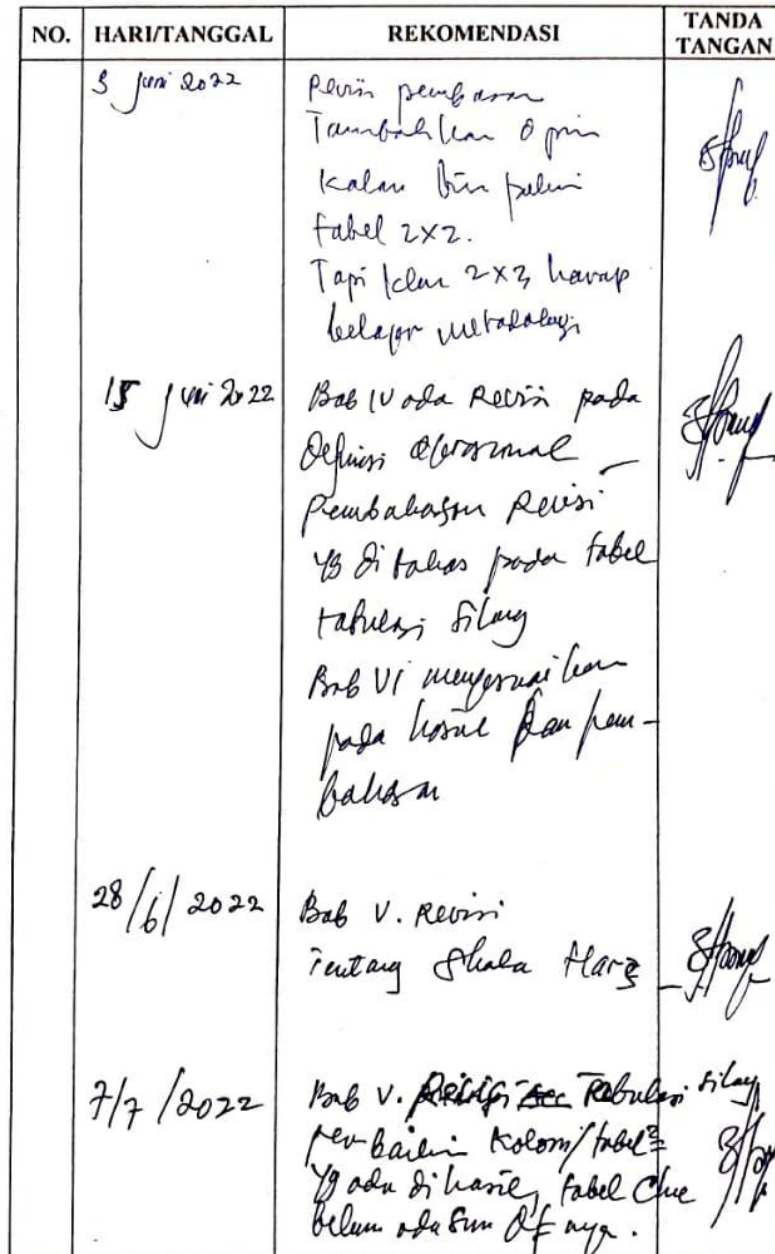 NO. HARI/TANGGAL REKOMENDASI TANDA TANGAN
3 Juni 2022 Revisi
Tambahkan Opini
Kalau
tabel 2x2.
Tapi 2x3 harap
belajar metodologi
15 Juni 2022 Bab IV ada Revisi pada
Definisi Operasional
Pembahasan Revisi
yg di bahas pada tabel
tabulasi silang
Bab VI menyesuaikan
pada hasil dan pem-
bahasan
28/6/2022 Bab V. Revisi
Tentang Skala
7/7/2022 Bab V. Tabulasi silang
perbaiki Kolom/tabel²
yg ada di hasil, tabel Chi
belum ada nya.